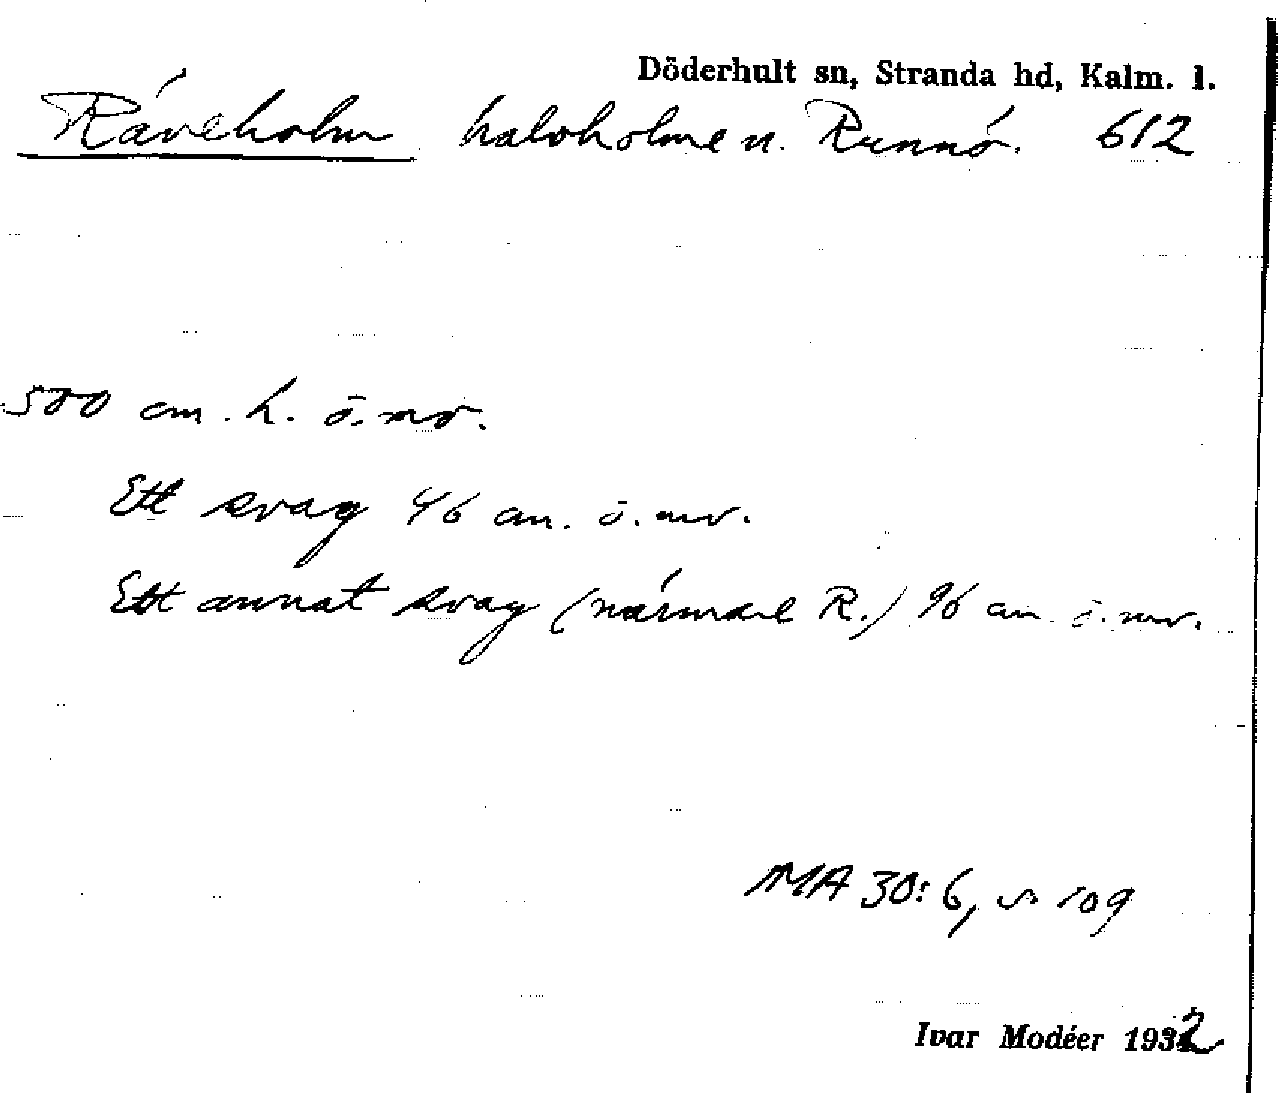 Döderhult sn, Stranda hd, Kalm. l.
Räveholm halvholme n. Runnö. 612
500 cm. h. ö. mv.
Ett svag 46 cm. ö. mv.
Ett annat svag (närmare R.) 96 cm ö. mv.
MA 30: 6, s 109
Ivar Modéer 1932